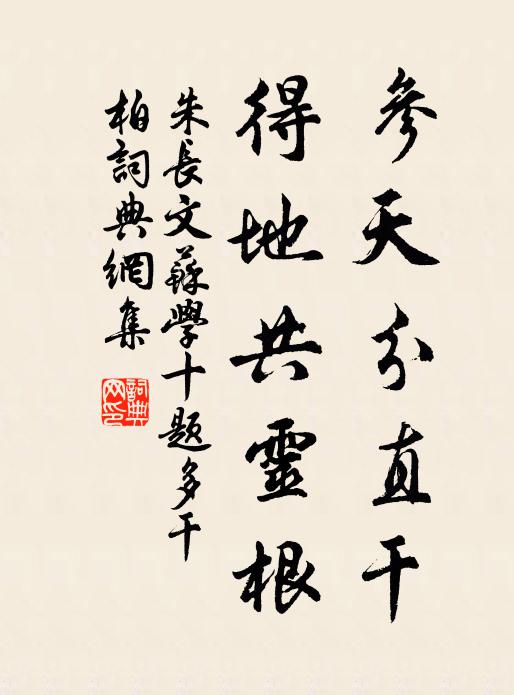 參天分直干
得地共靈根
朱長文蘇學十題多干
柏詞典網集
詞典
网印